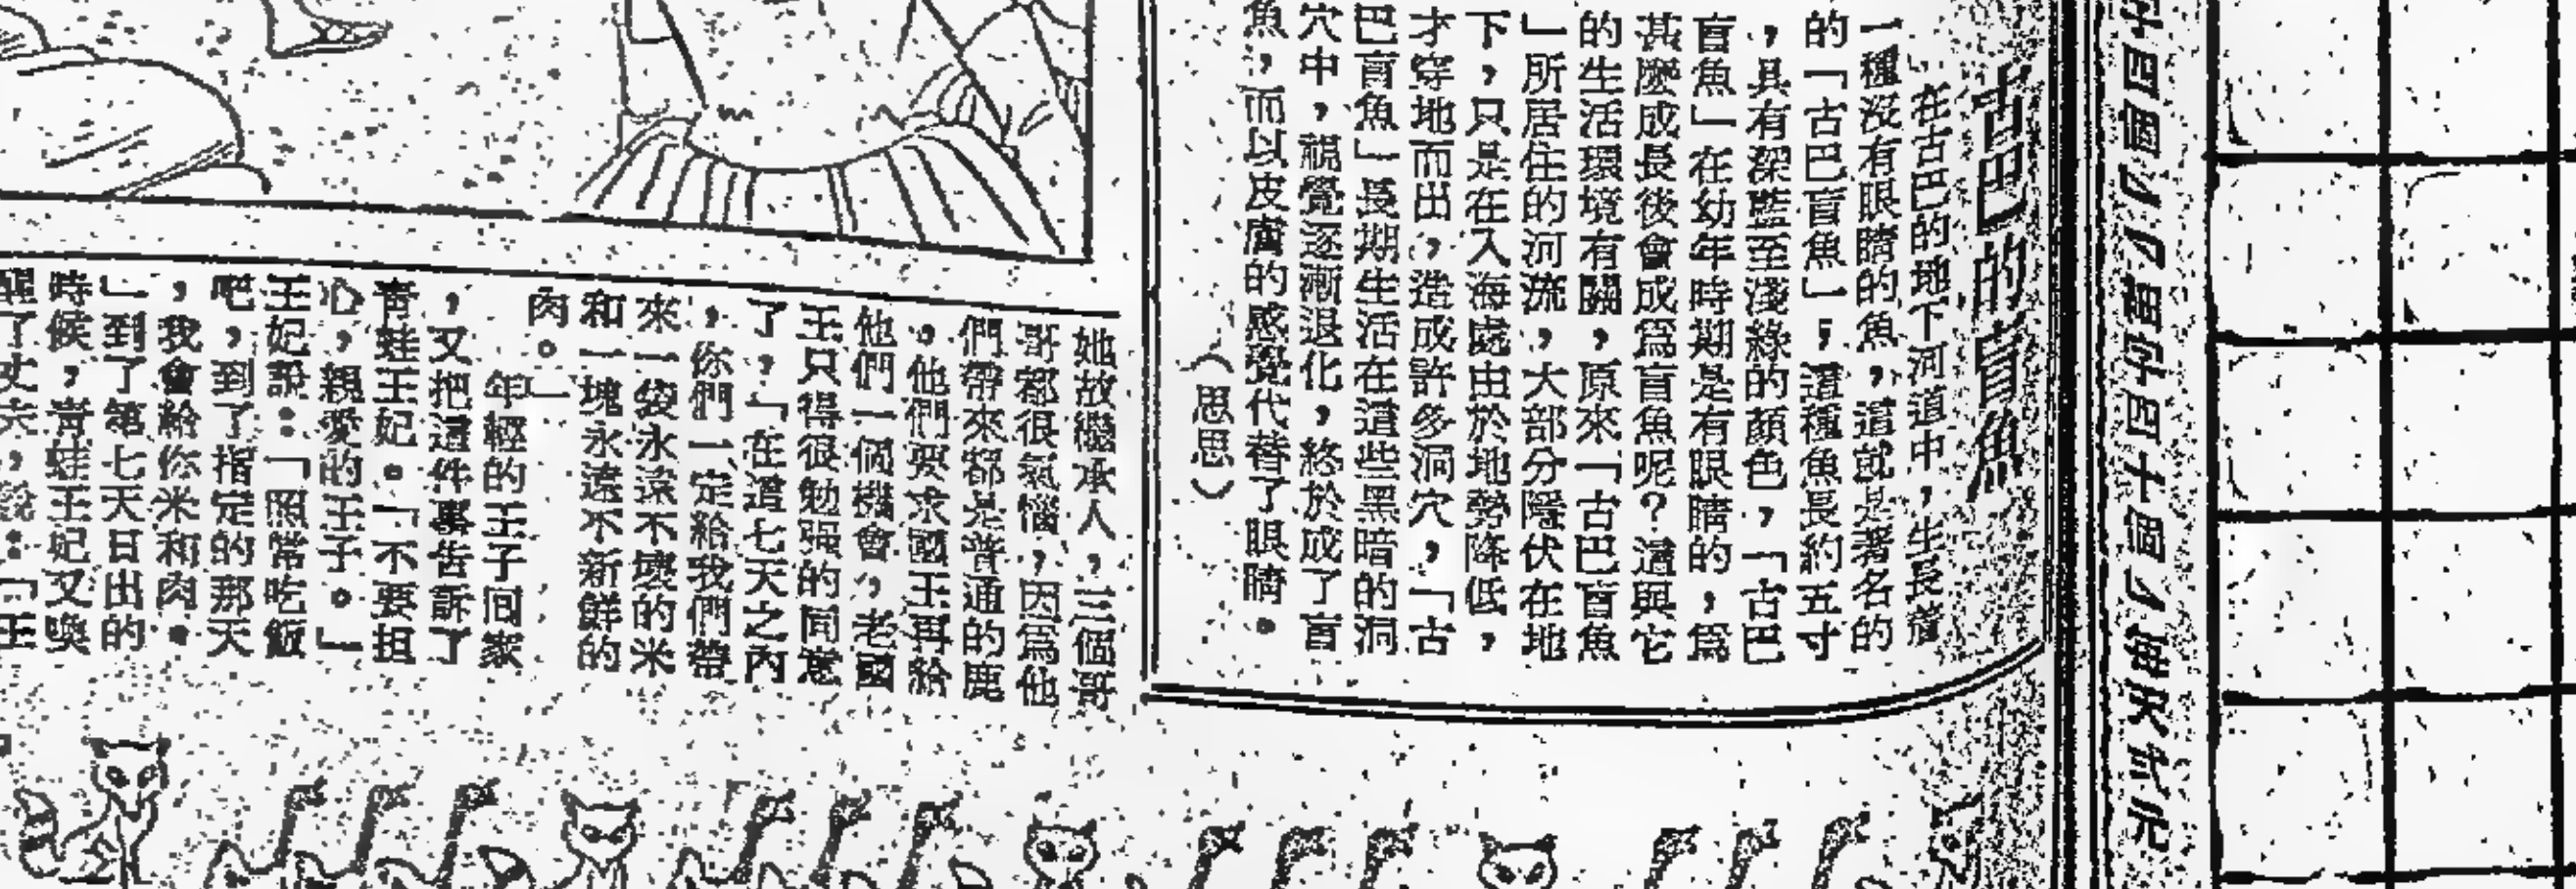 古巴的盲魚
在古巴的地下河道中，生長着
一種沒有眼睛的魚，這就是著名的
的「古巴盲魚」，這種魚長約五寸
，具有深藍至淺綠的顏色，「古巴
盲魚」在幼年時期是有眼睛的，爲
甚麽成長後會成爲盲魚呢？這與它
的生活環境有關，原來「古巴盲魚
」所居住的河流，大部分隱伏在地
下，只是在入海處由於地勢降低，
才穿地而出，造成許多洞穴，「古
巴盲魚」長期生活在這些黑暗的洞
穴中，視覺逐漸退化，終於成了盲
魚，而以皮膚的感覺代替了眼睛。
（思思）
她故繼承人，三個哥
哥都很氣惱，因爲他
們帶來都是普通的鹿
。他們要求國王再給
他們一個機會，老國
王只得很勉强的同意
了，「在這七天之內
，你們一定給我們帶
來一袋永遠不壞的米
和一塊永遠不新鮮的
肉。」
年輕的王子回家
，又把這件事告訴了
青蛙王妃。「不要担
心，親愛的王子。」
王妃說：「照常吃飯
吧，到了指定的那天
，我會給你米和肉。
」到了第七天日出的
時候，青蛙王妃又喚
醒了丈夫，說：「王